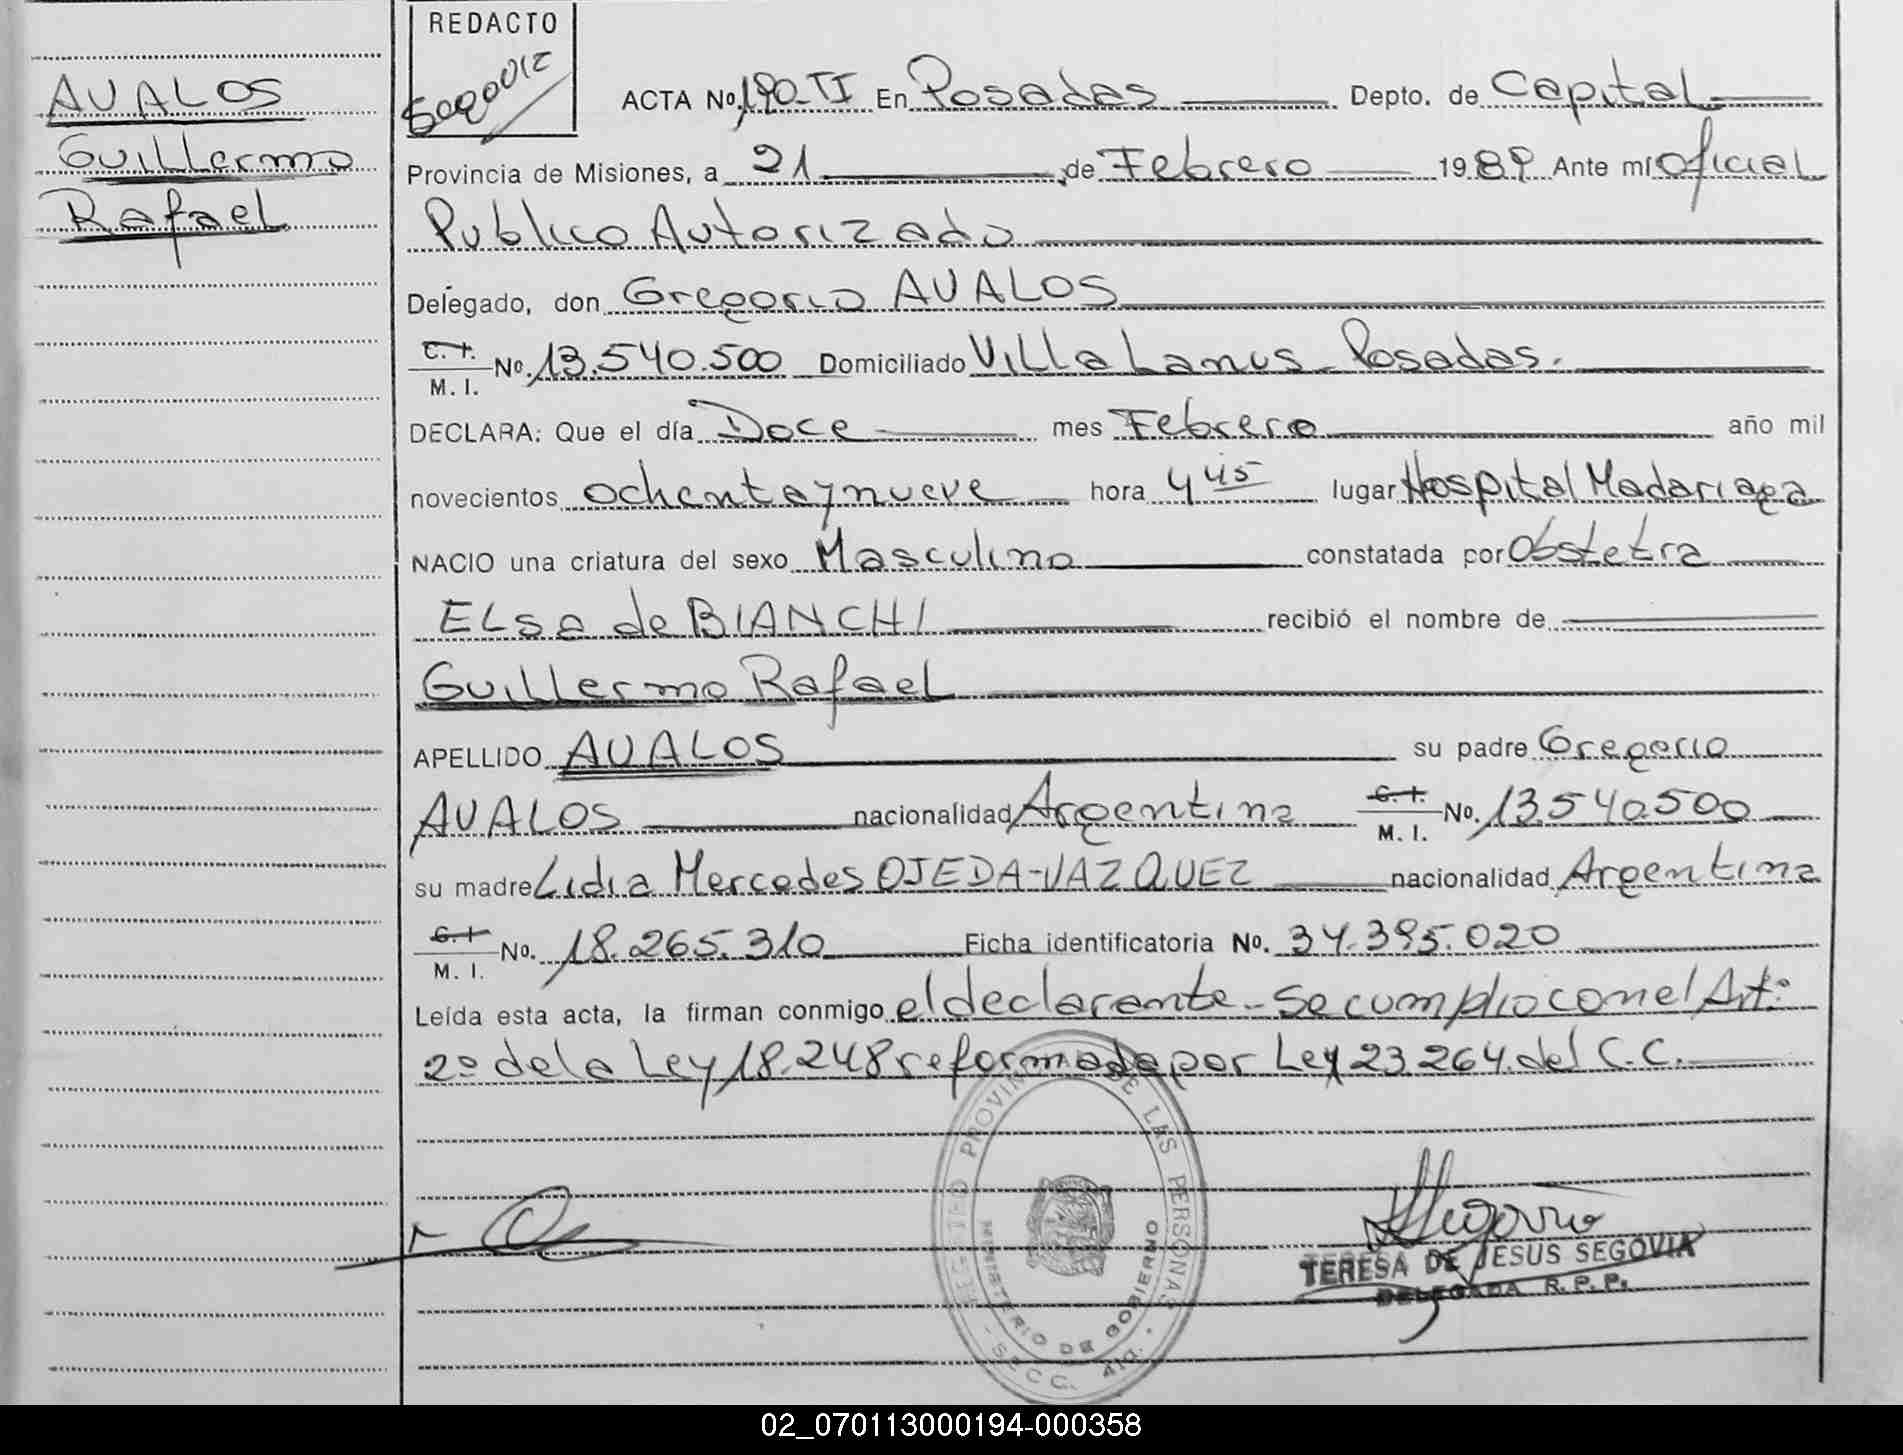 AVALOS
Guillermo
Rafael
REDACTO
Segovia
ACTA No. 190-TI En Posadas Depto. de Capital
Provincia de Misiones, a 21 de Febrero 1989 Ante mí Oficial
Publico Autorizado
Delegado, don Gregorio AVALOS
C. I. M. I. No. 13.540.500 Domiciliado Villa Lanus - Posadas.
DECLARA: Que el día Doce mes Febrero año mil
novecientos ochenta y nueve hora 4 45 lugar Hospital Madariaga
NACIO una criatura del sexo Masculino constatada por Obstetra
ELsa de BIANCHI recibió el nombre de
Guillermo Rafael
APELLIDO AVALOS su padre Gregorio
AVALOS nacionalidad Argentina C. I. M. I. No. 13.540.500
su madre Lidia Mercedes OJEDA-VAZQUEZ nacionalidad Argentina
C. I. M. I. No. 18.265.310 Ficha identificatoria No. 34.395.020
Leída esta acta, la firman conmigo el declarante - Se cumplio con el Art:
2º de la Ley 18.248 reformada por Ley 23.264. del C.C.
DE LAS PERSONAS
MINISTERIO DE GOBIERNO
TERESA DE JESUS SEGOVIA
DELEGADA R. P. P.
02_070113000194-000358